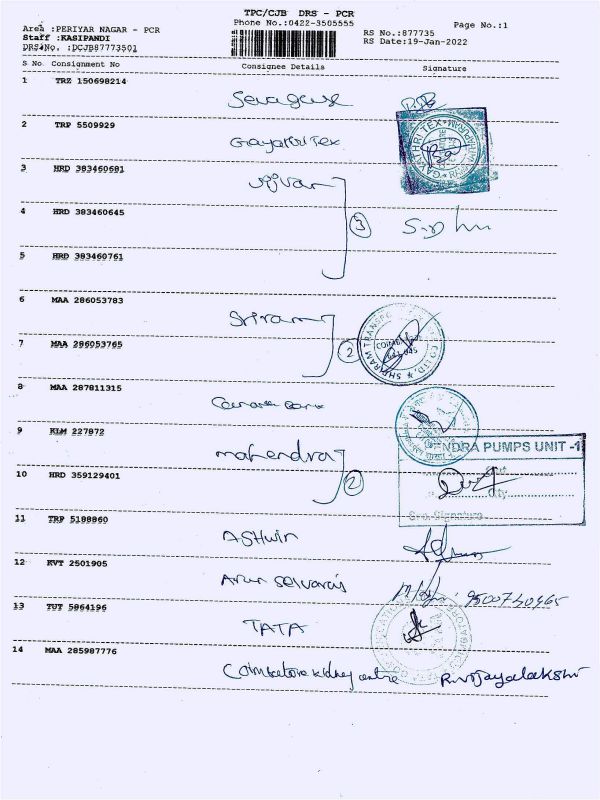 TPC/CJB DRS - PCR
Phone No.:0422-3505555
Page No.:1
Area :PERIYAR NAGAR - PCR
Staff :KASIPANDI
DRS#No. :DCJB87773501
RS No.:877735
RS Date:19-Jan-2022
S No Consignment No Consignee Details Signature
1 TRZ 150698214
2 TRP 5509929 Gayathri Tex
GAYATHRI TEX
3 HRD 383460681
4 HRD 383460645 3
5 HRD 383460761
6 MAA 286053783 Sriram
7 MAA 286053765 2
SHRIRAM TRANSPORT CO LTD.
8 MAA 287811315
9 KLM 227872 mahendra
10 HRD 359129401 2
ENDRA PUMPS UNIT -1
Sec. Signature
11 TRP 5188860 Ashwin
12 KVT 2501905 Arun Selvaraj
13 TUT 5864196 TATA
14 MAA 285987776 Coimbatore kidney centre R.vijayalakshmi